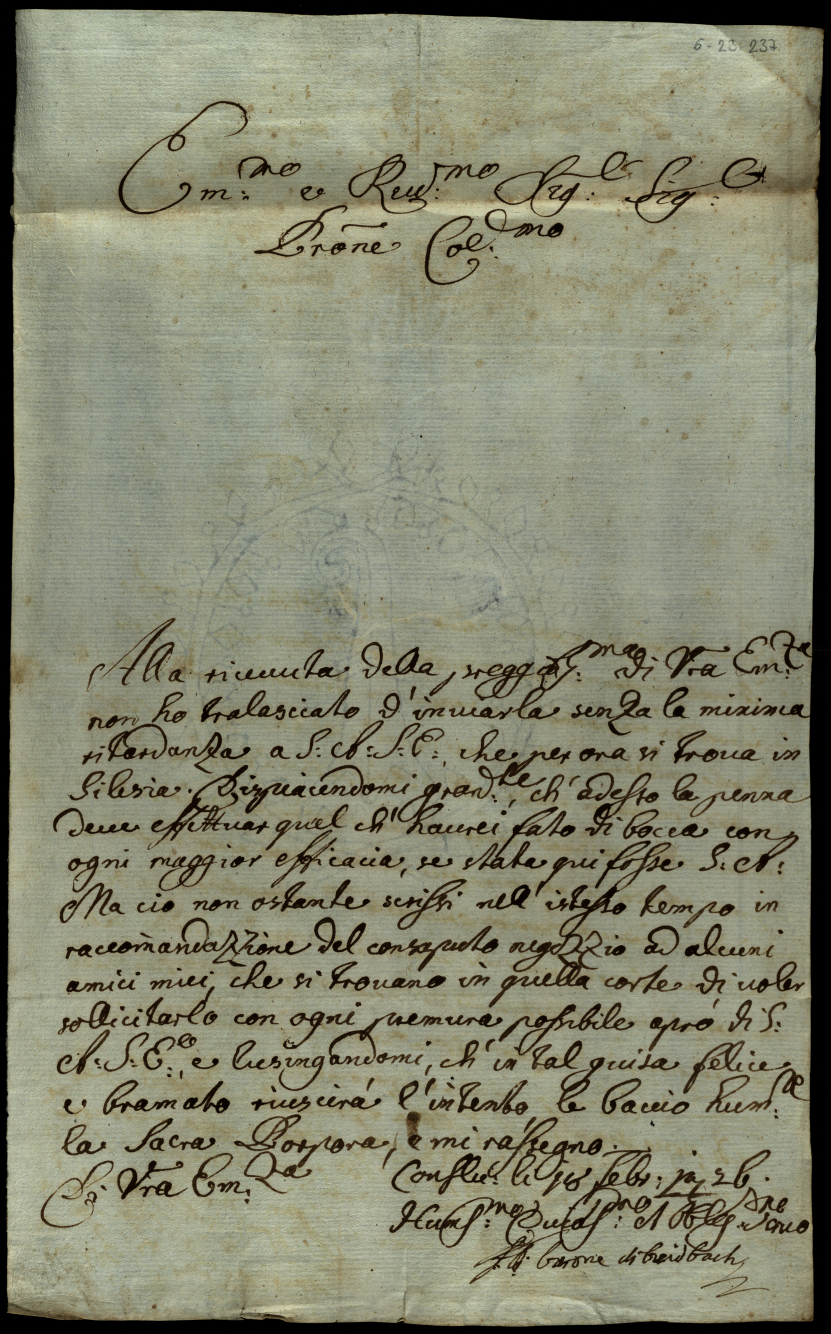 6-23-237
Em:mo e Reu:mo Sig:e Sig:e
Prone Col:mo
Alla riceuuta della preggiss:ma di Vra Em:za
non ho tralasciato d'inuiarla senza la minima
ritardanza a S: A: S: E:, che per ora si troua in
Silesia. Dispiacendomi grand:te, ch'adesso la penna
deue effettuar quel ch'haurei fato di bocca con
ogni maggior efficacia, se stata qui fosse S: A:
Ma cio non ostante scrissi nell'istesso tempo in
raccomandazzione del consaputo negozzio ad alcuni
amici miei, che si trouano in quella corte di uoler
sollicitarlo con ogni premura possibile a pró di S:
A: S: E:, e lusingandomi, ch'in tal guisa felice
e bramato riuscirá l'intento, le baccio hum:te
la Sacra Porpora, e mi rassegno.
Di Vra Em:za
li 18 febr: 1726.
Humiss:mo Deuotiss:mo et Obblig:
barone